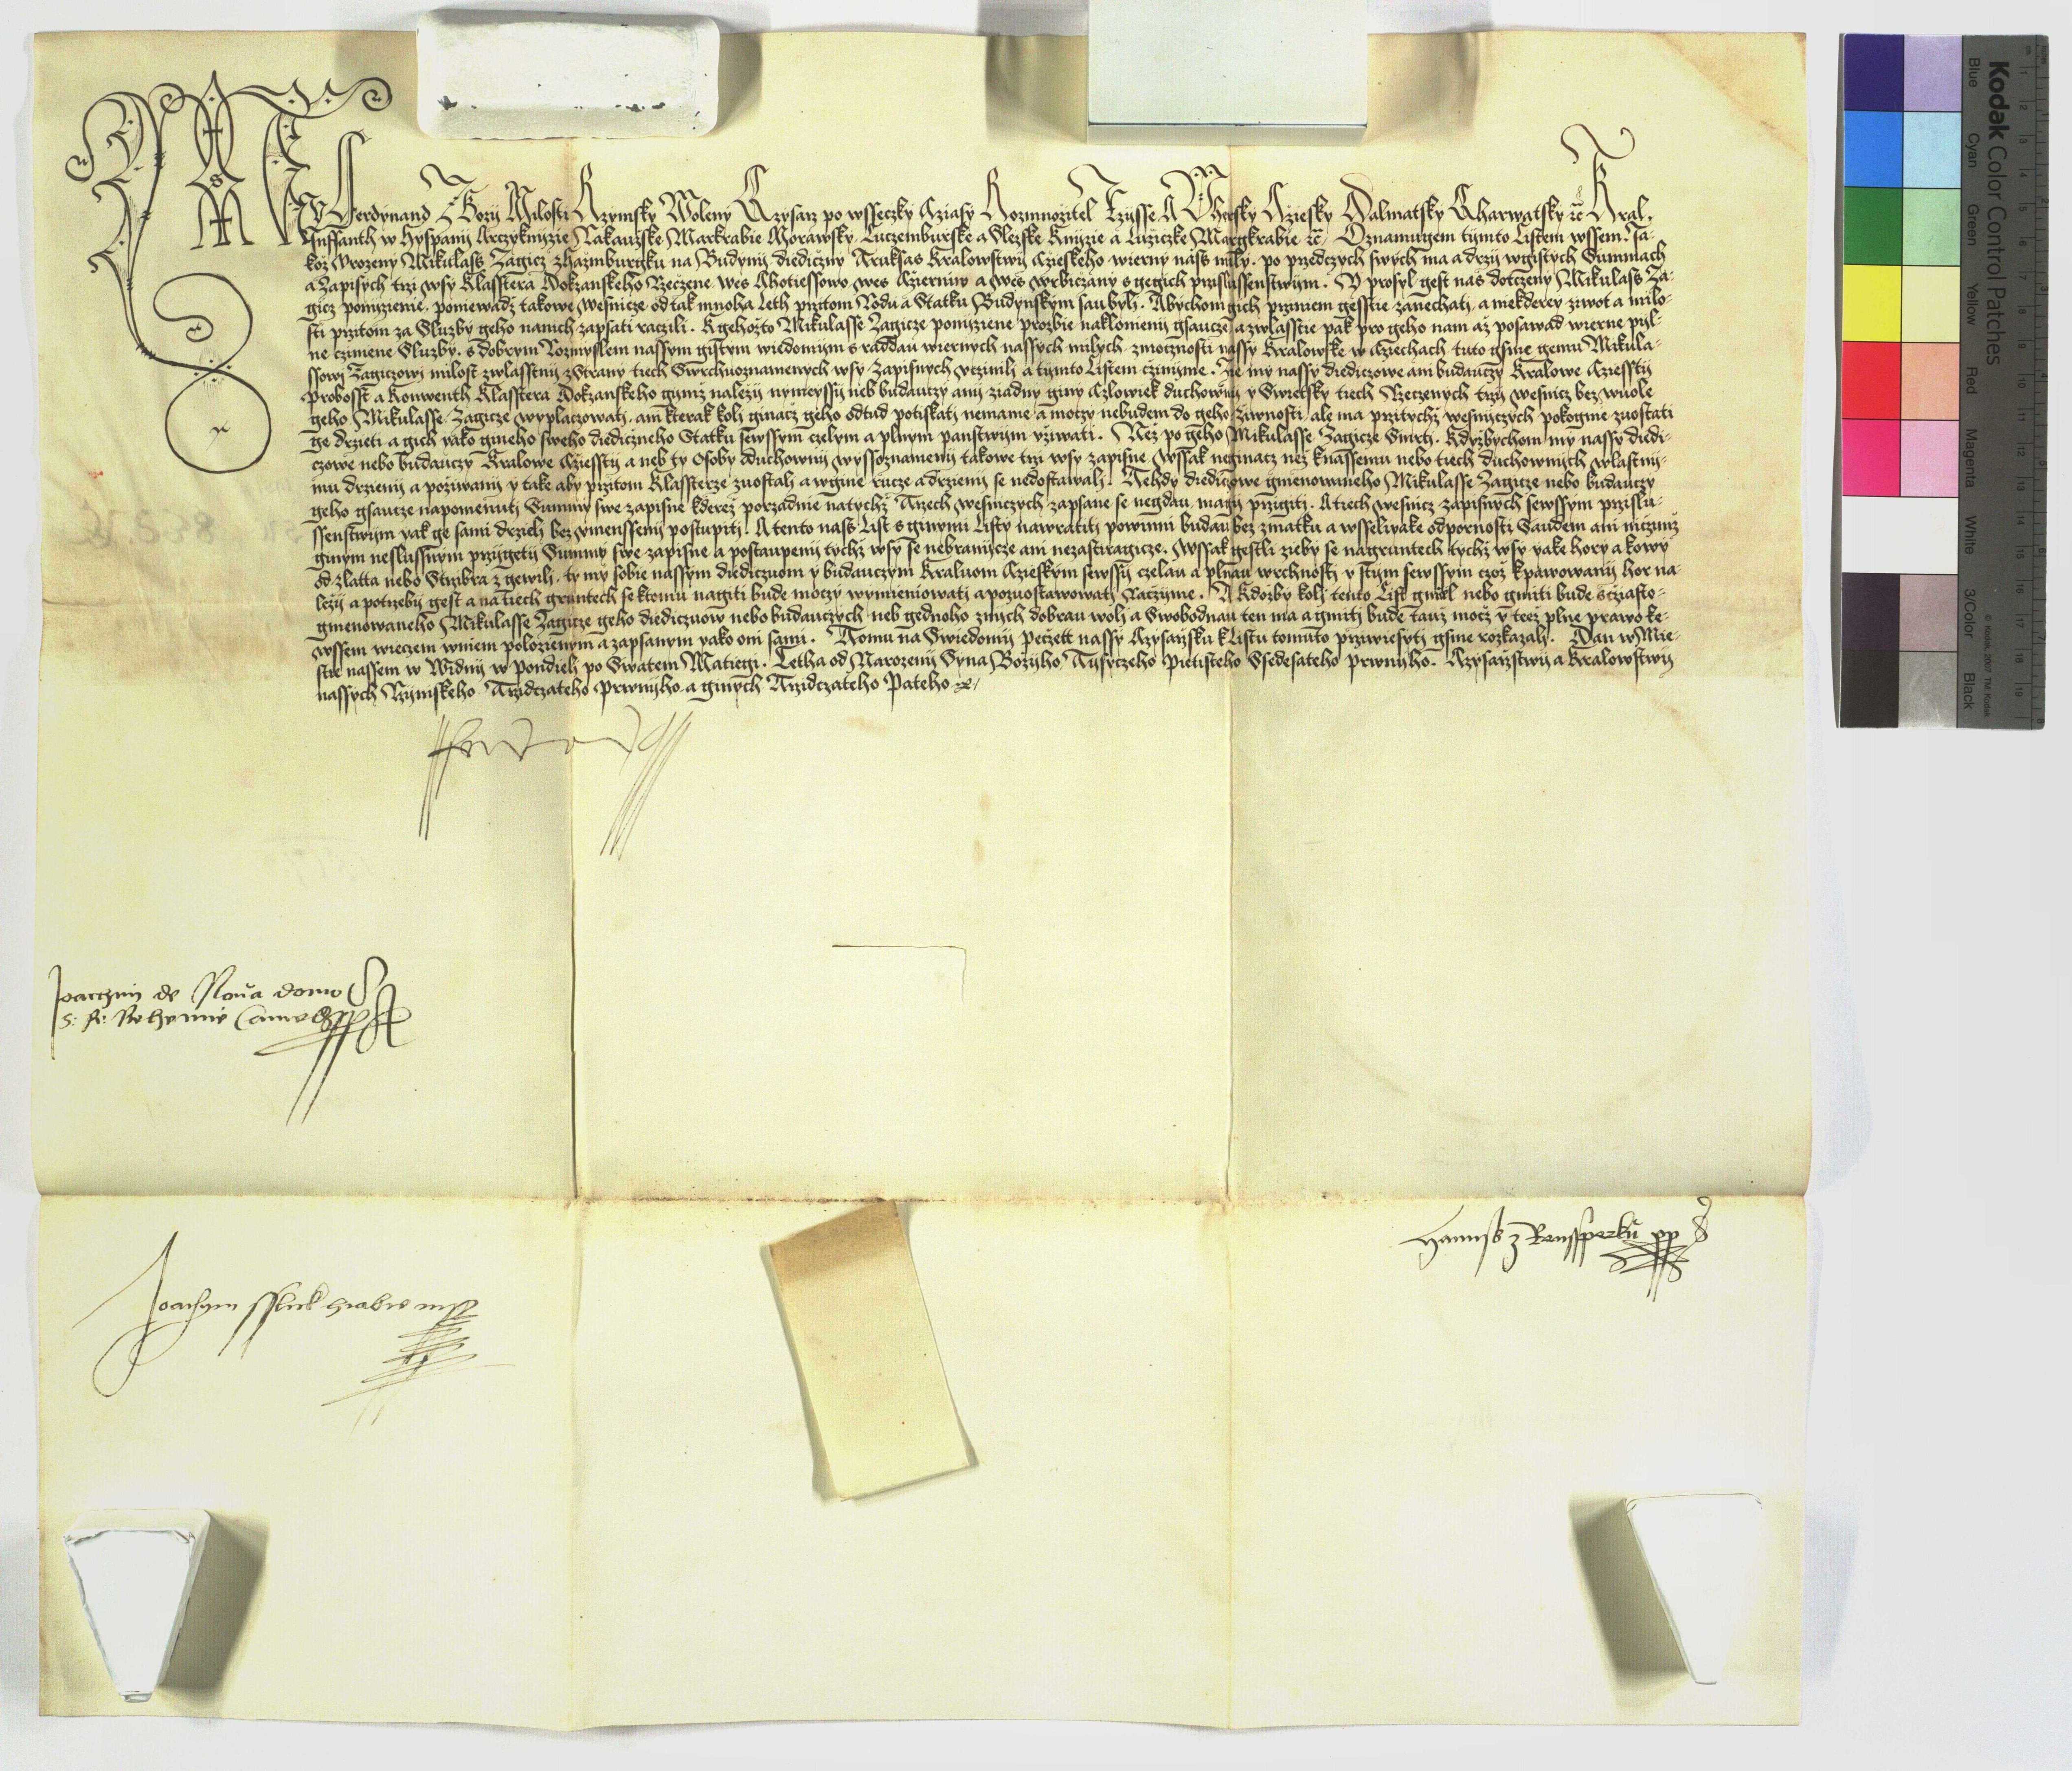 My Ferdynand Z Bozy Milosti Rzymsky Woleny Czysarz po wsseczky Cziasy Rozmnozitel Rzysse A Vhersky Cziesky Dalmatsky Charwatsky ꝛč Kral,
Inffanth w Hyspanij Arczyknyzie Rakauzske Markrabie Morawsky, Luczemburske a Slezske Knyzie a Luziczke Margkrabie ꝛč Oznamugem tymto Listem wssem. Ja-
koz Vrozeny Mikulass Zagicz zhazmburgku na Budyny diediczny Truksas Kralowstwij Czieskeho wierny nass mily. po przedczych swych ma a drzy wgistych Summach
a Zapisych trzi wsy Klasstera Dokzanskeho Rzeczene, wes Chotiessowo wes Czierniw a wes wrbiczany s gegich przislussenstwijm. V prosyl gest nas dotczeny Mikulass Za-
gicz ponizienie, poniewadz takowe wesnicze od tak mnoha Leth przitom Rodu a Statku Budynskym sau byli. Abychom gich przniem gesstie zanechati, a niekderey ziwot a milo-
sti przitom za Sluzby geho nanich zapsati raczili. K gehozto Mikulasse Zagicze ponizene prozbie naklonieni gsaucze a zwlasstie pak pro geho nam az posawad wierne pijl-
ne czinene Sluzby. s dobrym Rozmyslem nassym gistym wiedomim s raddau wiernych nassych milych, zmocznosti nassy Kralowske w Cziechach, tuto gsme gemu Mikula-
ssowi Zagiczowi milost zwlasstnij zStrany tiech Swrchuoznamenych wsy Zapisnych vczinili a tymto Listem czinime. Zie my nassy diediczowe ani buduczy Kralowe Cziesstij
Probosst a Konwenth Klasstera Dokzanskeho gymz nalezij nyneyssij neb buduczy anij ziadny giny Czlowiek duchowni y Swietsky tiech Rzeczenych trzij wesnicz bez wuole
geho Mikulasse Zagicze wyplaczowati, ani kterak koli ginacz geho odtud potiskati nemame a moczy nebudem do geho ziwnosti, ale ma przitychz wesniczych pokogne zuostati
ge drzeti a gich yako gineho sweho diediczneho Statku sewssym czelym a plnym panstwijm vziwati. Nez po geho Mikulasse Zagicze Smrti. Kdyzbychom my nassy diedi-
czowe nebo buduczy Kralowe Cziesstij a neb ty Osoby Duchownij wyssoznamenij takowe trzi wsy zapisne, wssak neginacz nez knassemu nebo tiech duchownich wlastnij-
mu drzenij a poziwanij y take aby przitom Klassterze zuostali a wgine rucze a drzeni se nedostawali. Tehdy diediczowe gmenowaneho Mikulasse Zagicze nebo buduczy
geho gsaucze napomenuti Summy swe zapisne kderez porzadnie natychz Trzech wesniczych zapsane se negdau, magij przigiti. A tiech wesnicz zapisnych sewssym przislu-
ssenstwijm yak ge sami drzeli bez vmenssenij postupiti. A tento nass List s ginymi Listy nawratiti powinni budau bez zmatku a wsselijake odpornosti Saudem ani niczimz
ginym neslussnym przigeti Summy swe zapisne a postaupeni tychz wsy se nebranijcze ani nezastiragicze. Wssak gestli zieby se nagruntech tychz wsy yake hory a kowy
od zlatta nebo Strzibra zgewili, ty my sobie nassym diediczuom y buduczym Kraluom Czieskym sewssij czelau a plnau wrchnosti y stym sewssym czoz kpawowanij hor na-
lezij a potrzebij gest a na tiech gruntech se ktomu nagiti bude moczy wymieniowati a pozuostawowati Raczyme. A Kdozby koli tento List gmiel nebo gmiti bude scziasto-
gmenowaneho Mikulasse Zagicze geho diediczuow nebo buduczych neb gednoho znich dobrau woli a Swobodnau ten ma a gmiti bude tauz mocz y teez plne prawo ke-
wssem wieczem wniem polozienym a zapsanym yako oni sami. Tomu na Swiedomij peczett nassy Czysarzsku k Listu tomuto przywiesyti gsme rozkazali. Dan w Mie-
stie nassem w Widni w Pondieli po Swatem Matiegi. Letha od Narozeni Syna Bozijho Tisyczeho Pietisteho Ssedesateho prwnijho. Czysarzstwij a Kralowstwij
nassych Rzymskeho Trzidczateho Prwnijho a ginych Trzidczateho Pateho ꝛč
Ferdinand
Joachim de Nova domo
S: R: Bohemie Cancell
Joachym Sslick hrabie mp
Hanuss z Renssperku pp